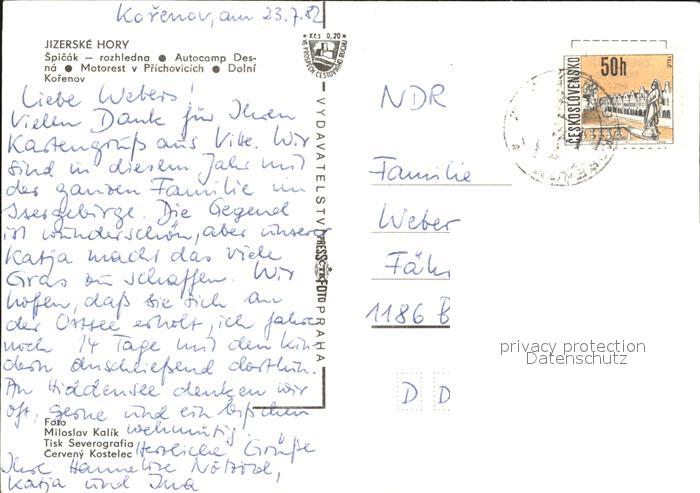 Kořenov, am 23.7.82
JIZERSKÉ HORY
Špičák — rozhledna ● Autocamp Des-
ná ● Motorest v Příchovicích ● Dolní
Kořenov
Kčs 0,20
VE PROSPĚCH CESTOVNÍHO RUCHU
Liebe Webers!
Vielen Dank für Ihren
Kartengruß aus Vitte. Wir
sind in diesem Jahr mit
der ganzen Familie im
Isergebirge. Die Gegend
ist wunderschön, aber unserer
Katja macht das viele
Gras zu schaffen. Wir
hoffen, daß sie sich an
der Ostsee erholt, ich fahre
noch 14 Tage mit den Kin-
dern anschließend dorthin.
An Hiddensee denken wir
oft, gerne und ein bißchen
wehmütig.
Herzliche Grüße
Ihre Hannelore
Katja und Ina
Foto
Miloslav Kalík
Tisk Severografia
Červený Kostelec
VYDAVATELSTVÍ PRESSFOTO PRAHA
ČTK
ČESKOSLOVENSKO
50h
TELČ
NDR
Familie
Weber
Fähr
1186 B
D D
privacy protection
Datenschutz